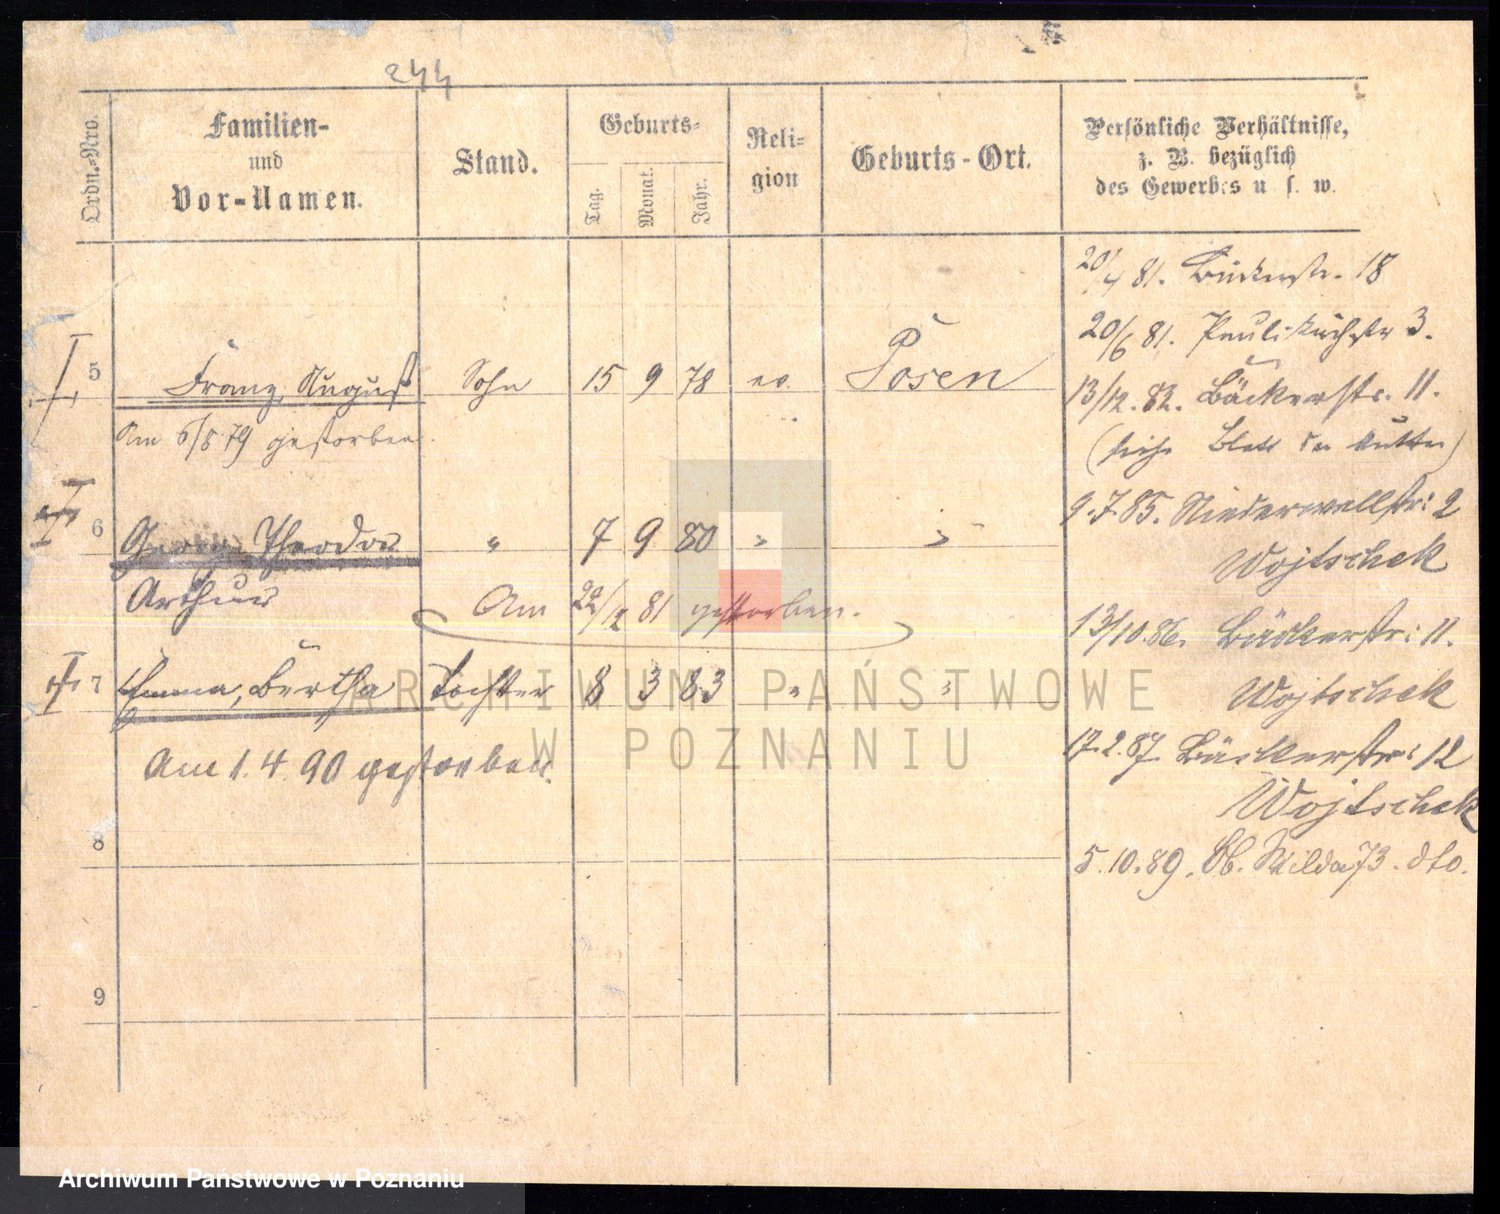 244
Ordn.-Nro.
Familien-
und
Vor-Namen.
Stand.
Geburts-
Tag.
Monat.
Jahr.
Reli-
gion
Geburts-Ort.
Persönliche Verhältnisse,
z. B. bezüglich
des Gewerbes u. s. w.
20/4 81. 18
20/6 81. Paulikirchstr 3.
5 Franz, August Sohn 15 9 78 ev. Posen
13/12. 82. Bäckerstr. 11.
Am 6/5 79 gestorben.
(siehe Blatt der Mutter)
6 Georg Theodor " 7 9 80 " "
9.7.85. Niederwallstr: 2
Wojtschek
Arthur Am 22/12 81 gestorben.
13/10.86. Bäckerstr: 11.
Wojtschek
7 Emma, Bertha Tochter 8 3 83 " "
Am 1.4.90 gestorben.
17.2.87. Bäckerstr: 12
Wojtschek
8
5.10.89. Ob. Wilda 73. dto.
9
ARCHIWUM PAŃSTWOWE
W POZNANIU
Archiwum Państwowe w Poznaniu